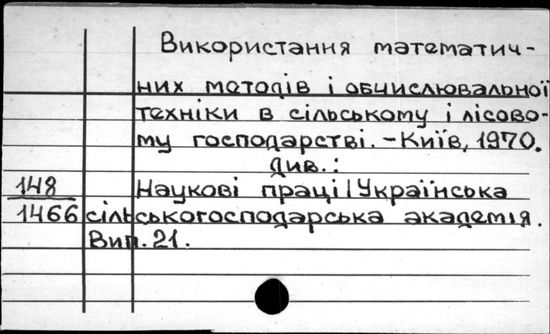 Використання математич-
них методів і обчислювальної
техніки в сільському і лісово-
му господарстві. - Київ, 1970.
див.:
148 Наукові праці / Українська
1466 сільськогосподарська академія.
Вип. 21.